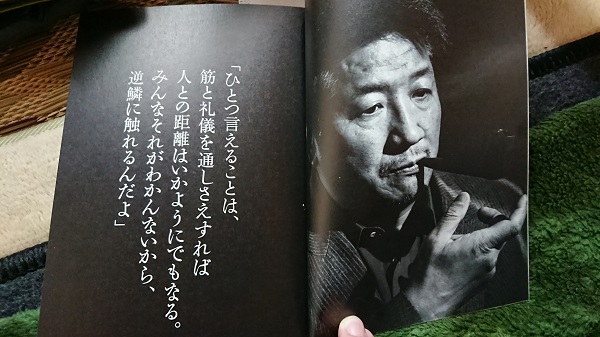 「ひとつ言えることは、
筋と礼儀を通しさえすれば
人との距離はいかようにでもなる。
みんなそれがわかんないから、
逆鱗に触れるんだよ」